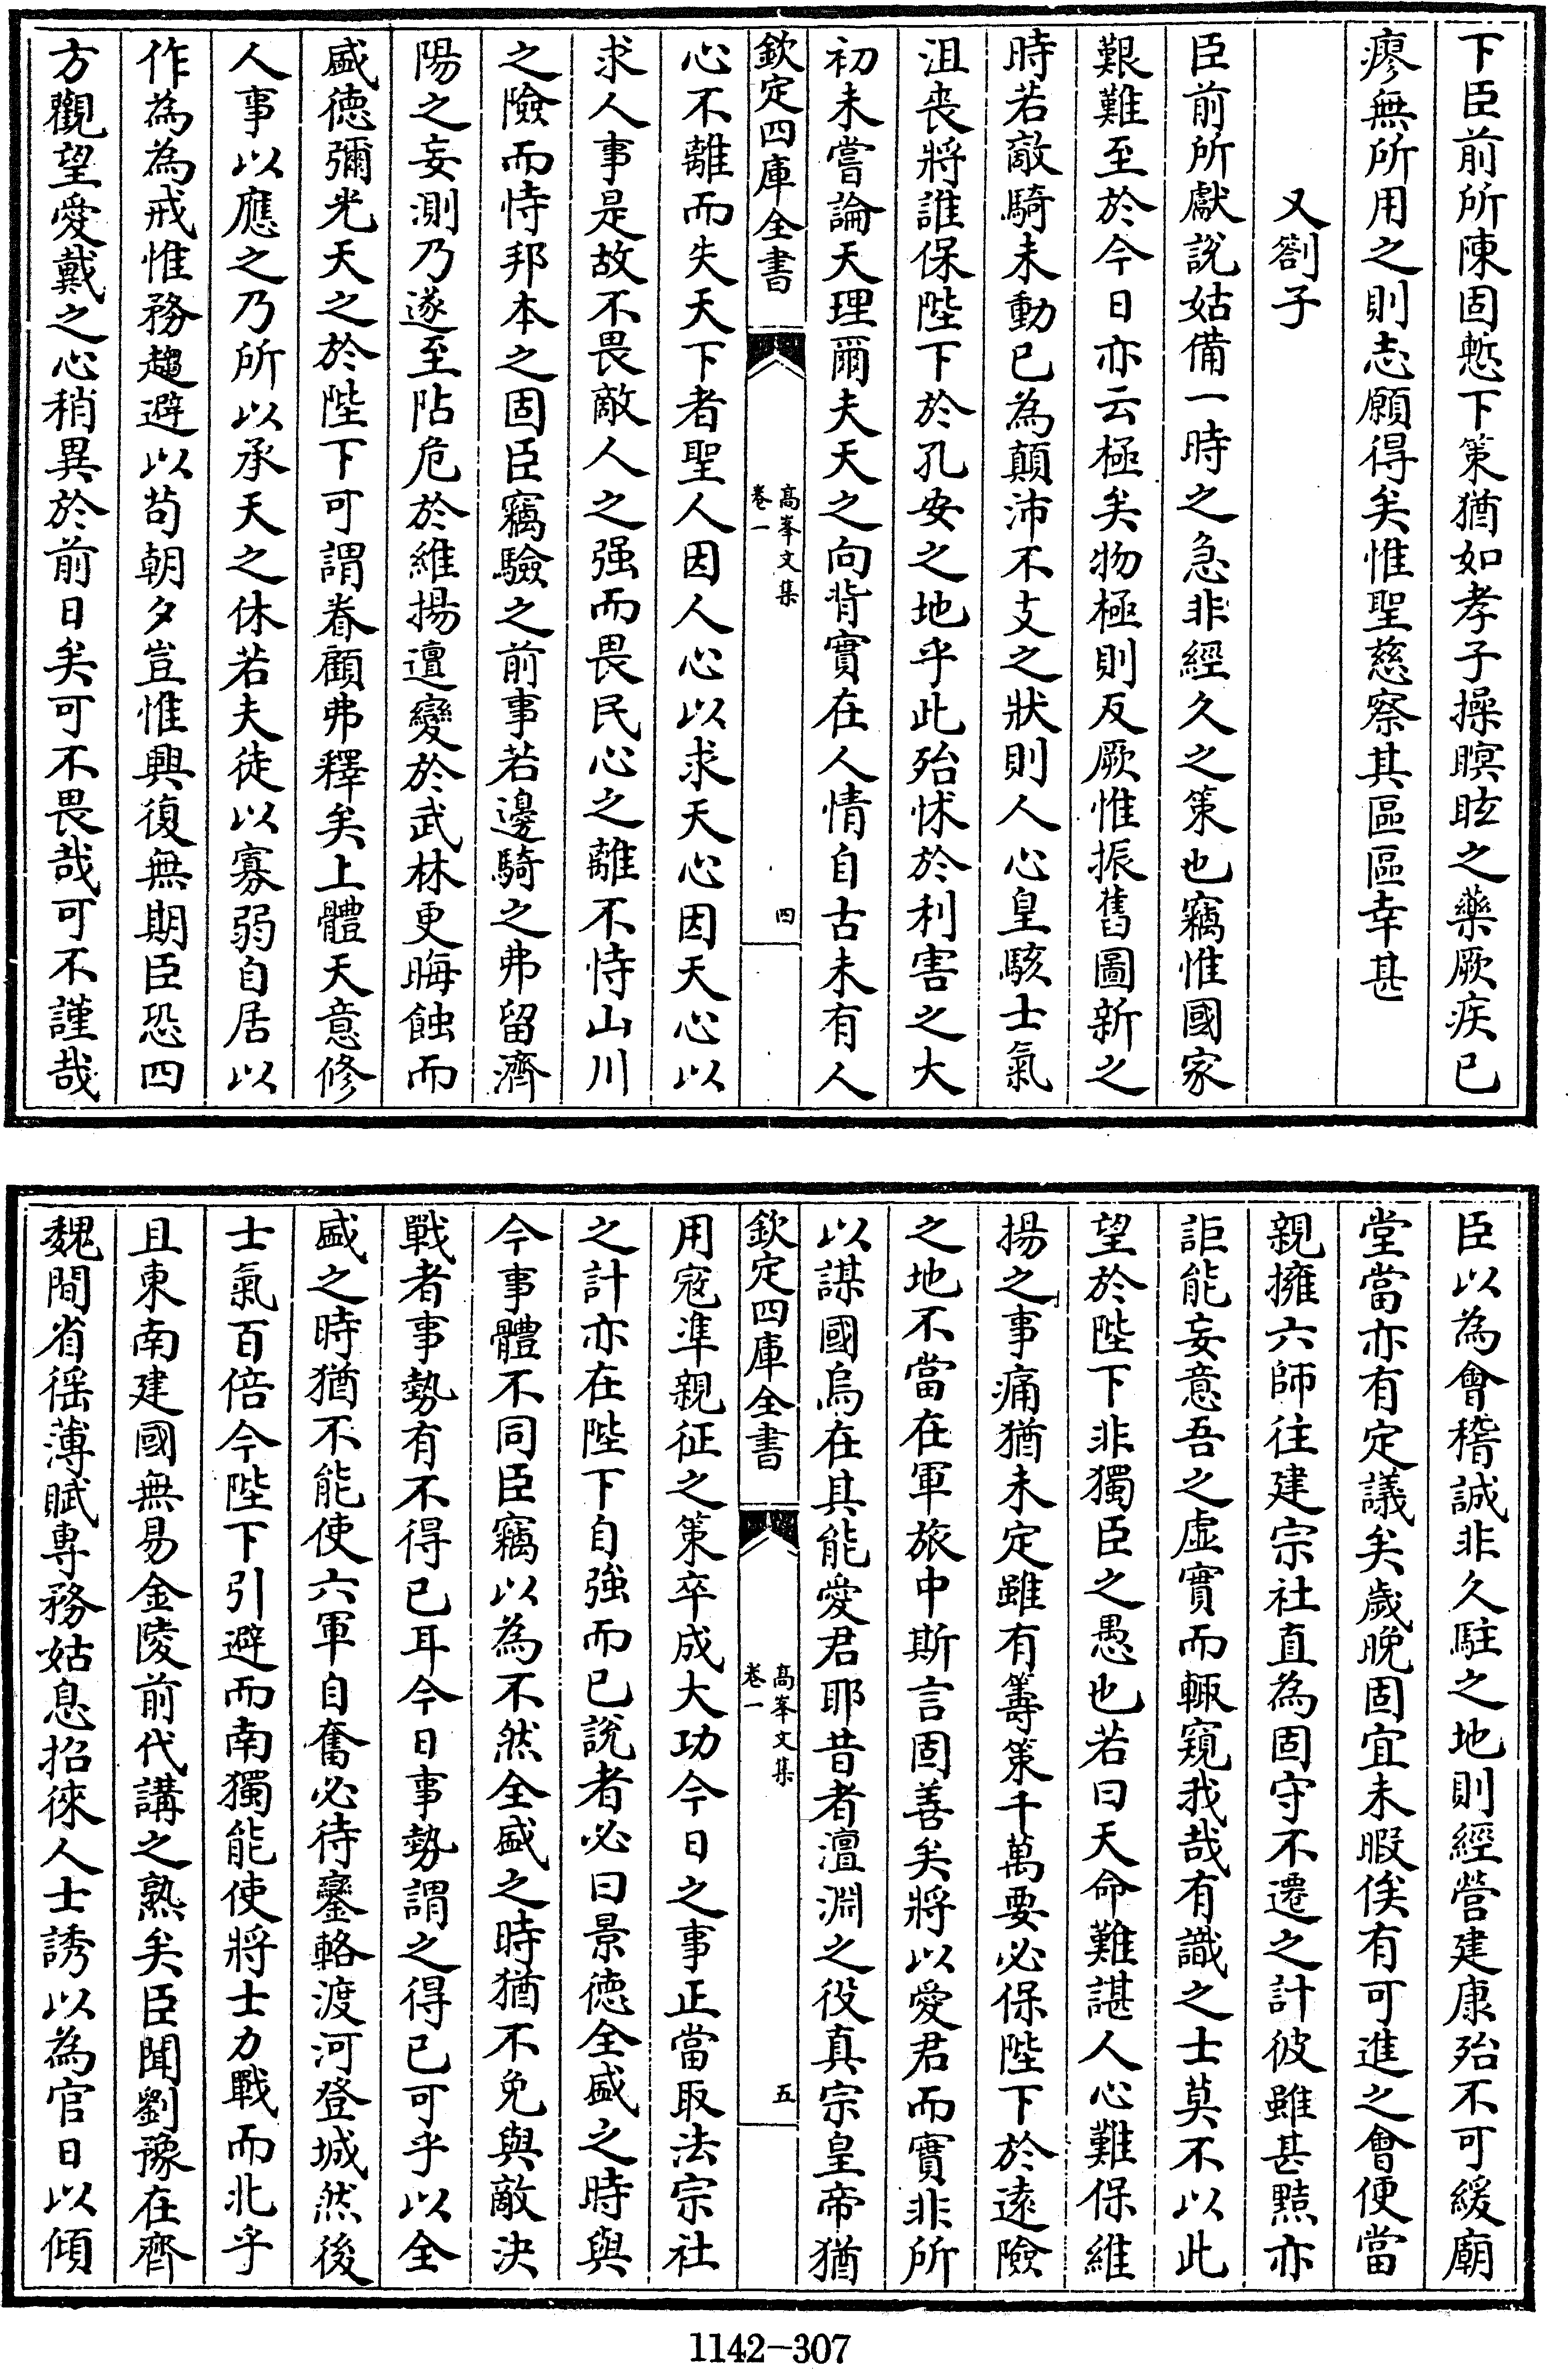 下臣前所陳固慙下策猶如孝子操瞑眩之藥厥疾已
瘳無所用之則志願得矣惟聖慈察其區區幸甚
又劄子
臣前所獻說姑備一時之急非經久之策也竊惟國家
艱難至於今日亦云極矣物極則反厥惟振舊圖新之
時若敵騎未動已為顛沛不支之狀則人心皇駭士氣
沮喪將誰保陛下於孔安之地乎此殆怵於利害之大
初未嘗論天理爾夫天之向背實在人情自古未有人
欽定四庫全書
高峯文集
卷一
四
心不離而失天下者聖人因人心以求天心因天心以
求人事是故不畏敵人之强而畏民心之離不恃山川
之險而恃邦本之固臣竊驗之前事若邊騎之弗留濟
陽之妄測乃遂至阽危於維揚邅變於武林更晦蝕而
盛德彌光天之於陛下可謂眷顧弗釋矣上體天意修
人事以應之乃所以承天之休若夫徒以寡弱自居以
作為為戒惟務趨避以苟朝夕豈惟興復無期臣恐四
方觀望愛戴之心稍異於前日矣可不畏哉可不謹哉
臣以為會稽誠非久駐之地則經營建康殆不可緩廟
堂當亦有定議矣歲晚固宜未暇俟有可進之會便當
親擁六師往建宗社直為固守不遷之計彼雖甚黠亦
詎能妄意吾之虛實而輒窺我哉有識之士莫不以此
望於陛下非獨臣之愚也若曰天命難諶人心難保維
揚之事痛猶未定雖有籌策千萬要必保陛下於遠險
之地不當在軍旅中斯言固善矣將以愛君而實非所
以謀國烏在其能愛君耶昔者澶淵之役真宗皇帝猶
欽定四庫全書
高峯文集
卷一
五
用寇準親征之策卒成大功今日之事正當取法宗社
之計亦在陛下自強而已說者必曰景德全盛之時與
今事體不同臣竊以為不然全盛之時猶不免與敵決
戰者事勢有不得已耳今日事勢謂之得已可乎以全
盛之時猶不能使六軍自奮必待鑾輅渡河登城然後
士氣百倍今陛下引避而南獨能使將士力戰而北乎
且東南建國無易金陵前代講之熟矣臣聞劉豫在齊
魏間省徭薄賦專務姑息招徠人士誘以為官日以傾
1142-307